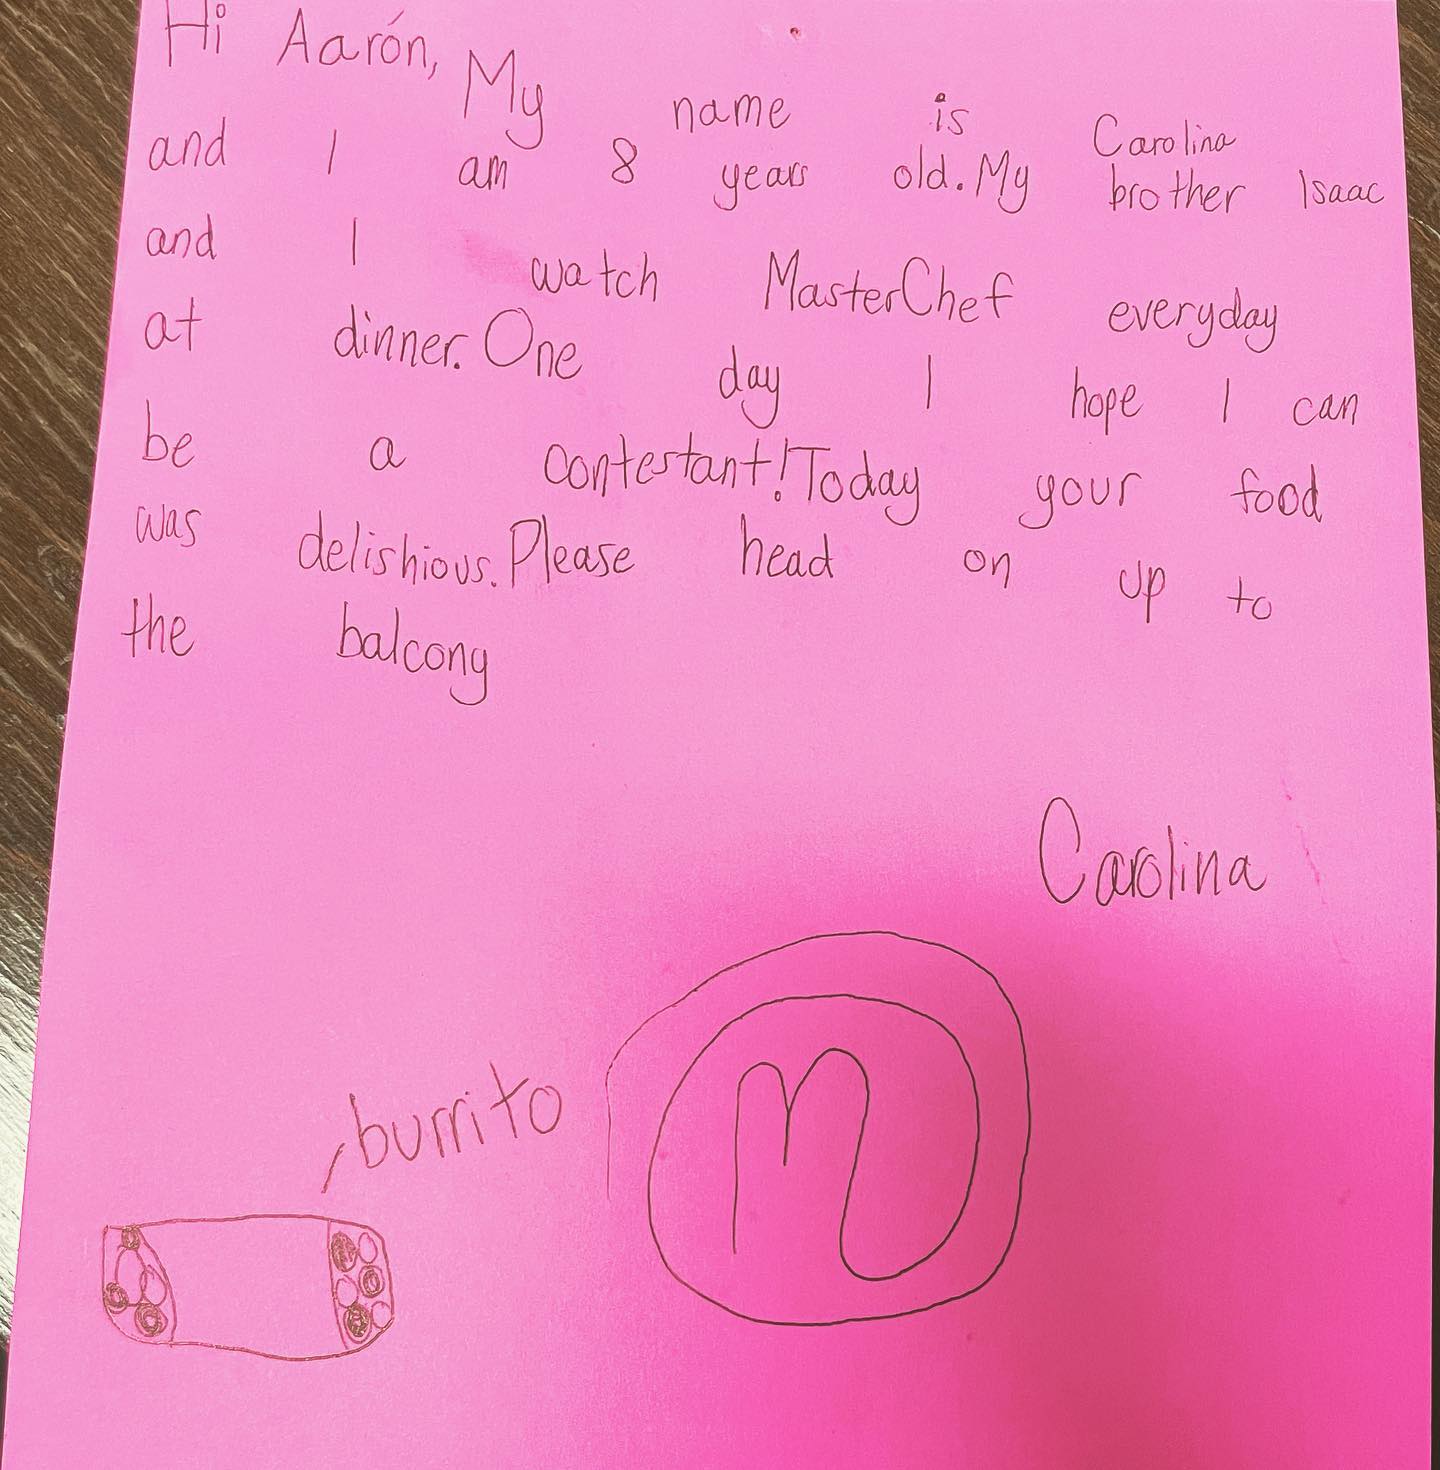 Hi Aarón, My name is Carolina
and I am 8 years old. My brother Isaac
and I watch MasterChef everyday
at dinner. One day I hope I can
be a contestant! Today your food
was delishious. Please head on up to
the balcony
Carolina
burrito
m